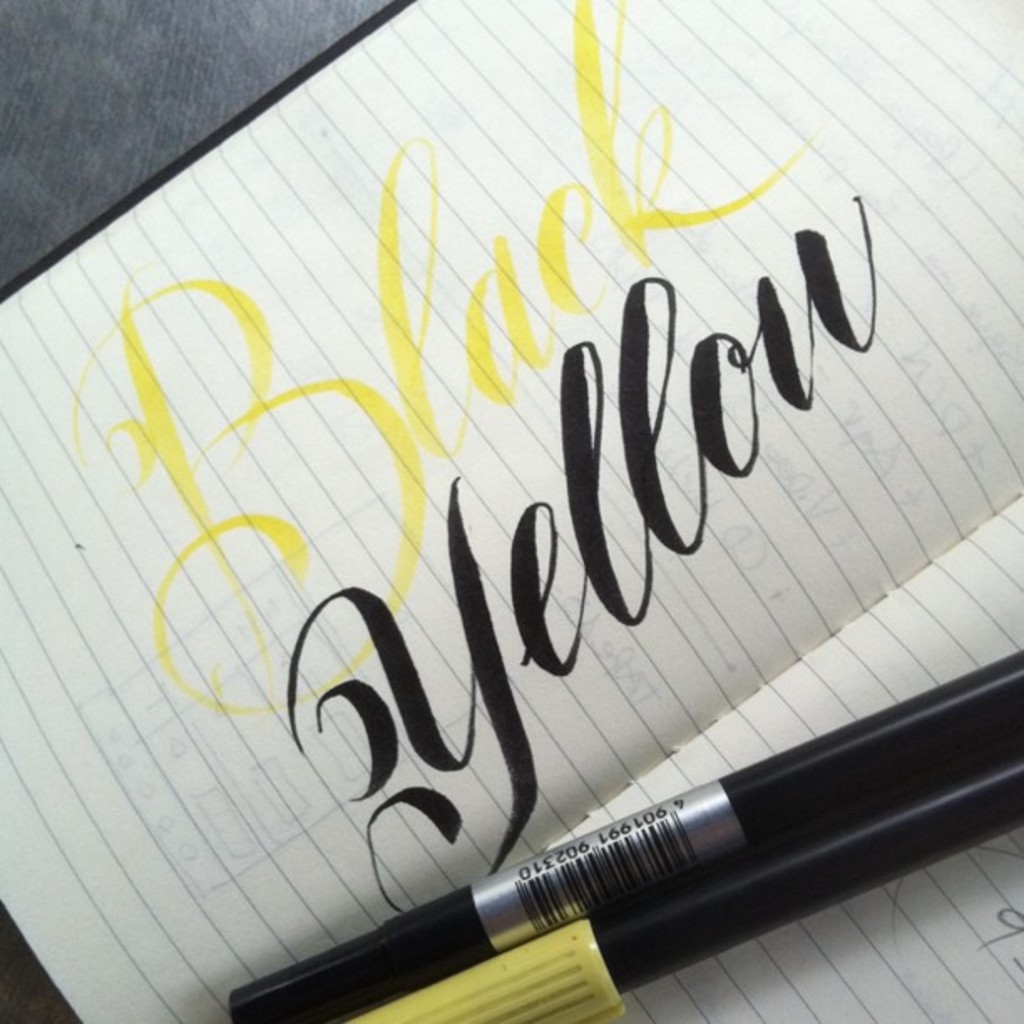 Black
Yellow
4 901991 902310